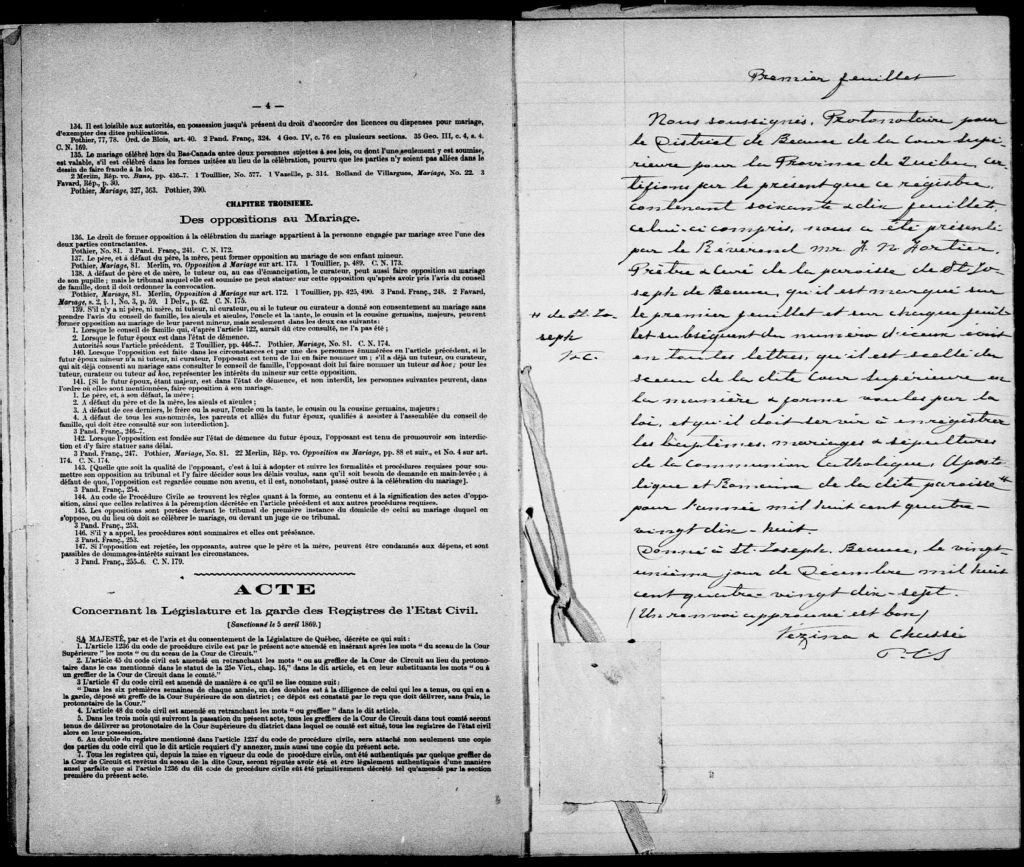 — 4 —
134. Il est loisible aux autorités, en possession jusqu'à présent du droit d'accorder des licences ou dispenses pour mariage,
d'exempter des dites publications.
Pothier, 77, 78. Ord. de Blois, art. 40. 2 Pand. Franç., 324. 4 Geo. IV, c. 76 en plusieurs sections. 35 Geo. III, c. 4, s. 4.
C. N. 169.
135. Le mariage célébré hors du Bas-Canada entre deux personnes sujettes à ses lois, ou dont l'une seulement y est soumise,
est valable, s'il est célébré dans les formes usitées au lieu de la célébration, pourvu que les parties n'y soient pas allées dans le
dessein de faire fraude à la loi.
2 Merlin, Rép. vo. Bans, pp. 436-7. 1 Touillier, No. 577. 1 Vazeille, p. 314. Rolland de Villargues, Mariage, No. 22. 3
Favard, Rép., p. 50.
Pothier, Mariage, 327, 363. Pothier, 390.
CHAPITRE TROISIEME.
Des oppositions au Mariage.
136. Le droit de former opposition à la célébration du mariage appartient à la personne engagée par mariage avec l'une des
deux parties contractantes.
Pothier, No. 81. 3 Pand. Franç., 241. C. N. 172.
137. Le père, et à défaut du père, la mère, peut former opposition au mariage de son enfant mineur.
Pothier, Mariage, 81. Merlin, vo. Opposition à Mariage sur art. 173. 1 Touillier, p. 489. C. N. 173.
138. A défaut de père et de mère, le tuteur ou, au cas d'émancipation, le curateur, peut aussi faire opposition au mariage
de son pupille; mais le tribunal auquel elle est soumise ne peut statuer sur cette opposition qu'après avoir pris l'avis du conseil
de famille, dont il doit ordonner la convocation.
Pothier, Mariage, 81. Merlin, Opposition à Mariage sur art. 172. 1 Touillier, pp. 425, 490. 3 Pand. Franç., 248. 2 Favard,
Mariage, s. 2, §. 1, No. 3, p. 59. 1 Delv., p. 62. C. N. 175.
139. S'il n'y a ni père, ni mère, ni tuteur, ni curateur, ou si le tuteur ou curateur a donné son consentement au mariage sans
prendre l'avis du conseil de famille, les aïeuls et aïeules, l'oncle et la tante, le cousin et la cousine germains, majeurs, peuvent
former opposition au mariage de leur parent mineur, mais seulement dans les deux cas suivants:
1. Lorsque le conseil de famille qui, d'après l'article 122, aurait dû être consulté, ne l'a pas été;
2. Lorsque le futur époux est dans l'état de démence.
Autorités sous l'article précédent. 2 Touillier, pp. 446-7. Pothier, Mariage, No. 81. C. N. 174.
140. Lorsque l'opposition est faite dans les circonstances et par une des personnes énumérées en l'article précédent, si le
futur époux mineur n'a ni tuteur, ni curateur, l'opposant est tenu de lui en faire nommer un; s'il a déjà un tuteur, ou curateur,
qui ait déjà consenti au mariage sans consulter le conseil de famille, l'opposant doit lui faire nommer un tuteur ad hoc; pour les
tuteur, curateur ou tuteur ad hoc, représenter les intérêts du mineur sur cette opposition.
141. [Si le futur époux, étant majeur, est dans l'état de démence, et non interdit, les personnes suivantes peuvent, dans
l'ordre où elles sont mentionnées, faire opposition à son mariage.
1. Le père, et, à son défaut, la mère;
2. A défaut du père et de la mère, les aïeuls et aïeules;
3. A défaut de ces derniers, le frère ou la sœur, l'oncle ou la tante, le cousin ou la cousine germains, majeurs;
4. A défaut de tous les sus-nommés, les parents et alliés du futur époux, qualifiés à assister à l'assemblée du conseil de
famille, qui doit être consulté sur son interdiction].
3 Pand. Franç., 246-7.
142. Lorsque l'opposition est fondée sur l'état de démence du futur époux, l'opposant est tenu de promouvoir son interdic-
tion et d'y faire statuer sans délai.
3 Pand. Franç., 247. Pothier, Mariage, No. 81. 22 Merlin, Rép. vo. Opposition au Mariage, pp. 88 et suiv., et No. 4 sur art.
174. C. N. 174.
143. [Quelle que soit la qualité de l'opposant, c'est à lui à adopter et suivre les formalités et procédures requises pour sou-
mettre son opposition au tribunal et l'y faire décider sous les délais voulus, sans qu'il soit besoin de demande en main-levée; à
défaut de quoi, l'opposition est regardée comme non avenu, et il est, nonobstant, passé outre à la célébration du mariage].
3 Pand. Franç., 254.
144. Au code de Procédure Civile se trouvent les règles quant à la forme, au contenu et à la signification des actes d'oppo-
sition, ainsi que celles relatives à la péremption décrétée en l'article précédent et aux autres procédures requises.
145. Les oppositions sont portées devant le tribunal de première instance du domicile de celui au mariage duquel on
s'oppose, ou du lieu où doit se célébrer le mariage, ou devant un juge de ce tribunal.
3 Pand. Franç., 253.
146. S'il y a appel, les procédures sont sommaires et elles ont préséance.
3 Pand. Franç., 253.
147. Si l'opposition est rejetée, les opposants, autres que le père et la mère, peuvent être condamnés aux dépens, et sont
passibles de dommages-intérêts suivant les circonstances.
3 Pand. Franç., 255-6. C. N. 179.
ACTE
Concernant la Législature et la garde des Registres de l'Etat Civil.
[Sanctionné le 5 avril 1869.]
SA MAJESTÉ, par et de l'avis et du consentement de la Législature de Québec, décrète ce qui suit:
1. L'article 1236 du code de procédure civile est par le présent acte amendé en insérant après les mots " du sceau de la Cour
Supérieure " les mots " ou du sceau de la Cour de Circuit."
2. L'article 45 du code civil est amendé en retranchant les mots " ou au greffier de la Cour de Circuit au lieu du protono-
taire dans le cas mentionné dans le statut de la 25e Vict., chap. 16," dans le dit article, et en leur substituants les mots " ou à
un greffier de la Cour de Circuit dans le comté."
3 L'article 47 du code civil est amendé de manière à ce qu'il se lise comme suit:
" Dans les six premières semaines de chaque année, un des doubles est à la diligence de celui qui les a tenus, ou qui en a
la garde, déposé au greffe de la Cour Supérieure de son district; ce dépôt est constaté par le reçu que doit délivrer, sans frais, le
protonotaire de la Cour."
4. L'article 48 du code civil est amendé en retranchant les mots " ou greffier " dans le dit article.
5. Dans les trois mois qui suivront la passation du présent acte, tous les greffiers de la Cour de Circuit dans tout comté seront
tenus de délivrer au protonotaire de la Cour supérieure du district dans lequel ce comté est situé, tous les registres de l'état civil
alors en leur possession.
6. Au double du registre mentionné dans l'article 1237 du code de procédure civile, sera attaché non seulement une copie
des parties du code civil que le dit article requiert d'y annexer, mais aussi une copie du présent acte.
7. Tous les registres qui, depuis la mise en vigueur du code de procédure civile, ont été authentiqués par quelque greffier de
la Cour de Circuit et revêtus du sceau de la dite Cour, seront réputés avoir été et être légalement authentiqués d'une manière
aussi parfaite que si l'article 1236 du dit code de procédure civile eût été primitivement décrété tel qu'amendé par la section
première du présent acte.
Premier feuillet
Nous soussignés, Protonotaire pour
le District de Beauce de la cour supé-
rieure pour la Province de Québec, cer-
tifions par le présent que ce régistre,
contenant soixante & dix feuillet,
celui-ci compris, nous a été présenté
par le Révérend Mr. J. N. Fortier,
Prêtre & Curé de la paroisse de St Jo-
seph de Beauce, qu'il est marqué sur
le premier feuillet et sur chaque feuil-
let subséquent du numéro d'iceux écrit
en toutes lettres, qu'il est scellé du
sceau de la dite Cour supérieure en
la manière & forme voulues par la
loi, et qu'il doit servir à enregistrer
les baptêmes, mariages & sépultures
de la communion Catholique, Aposto-
lique et Romaine de la dite paroisse #
pour l'année mil huit cent quatre-
vingt dix-huit.
Donné à St-Joseph, Beauce, le vingt
unième jour de Décembre mil huit
cent quatre-vingt dix-sept.
(Un renvoi approuvé est bon)
Vézina &
P.C.S
# de St. Jo-
seph